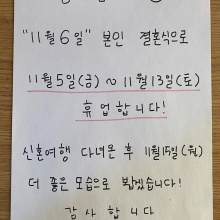 "11월 6일" 본인 결혼식으로
11월 5일(금) ~ 11월 13일(토)
휴업합니다!
신혼여행 다녀온 후 11월15일(월)
더 좋은 모습으로 뵙겠습니다!
감사합니다